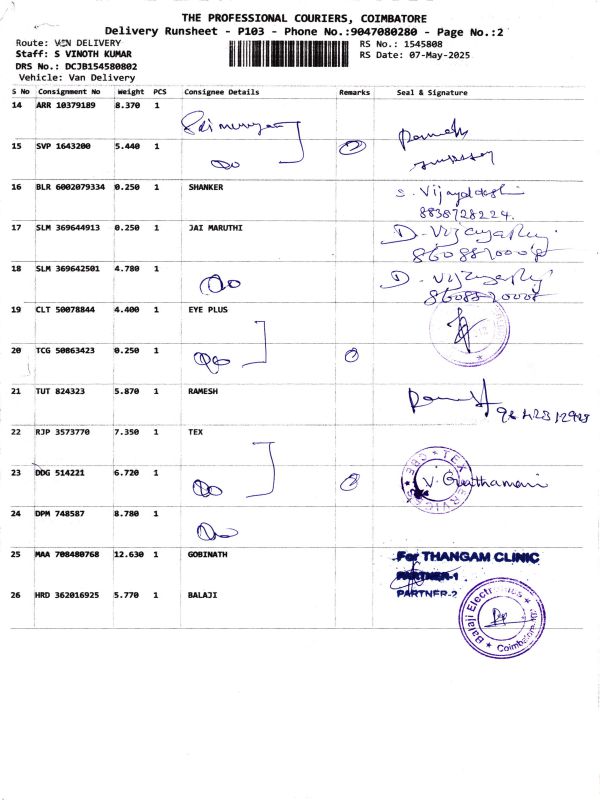 THE PROFESSIONAL COURIERS, COIMBATORE
Delivery Runsheet - P103 - Phone No.:9047080280 - Page No.:2
Route: VAN DELIVERY
RS No.: 1545808
Staff: S VINOTH KUMAR
RS Date: 07-May-2025
DRS No.: DCJB154580802
Vehicle: Van Delivery
S No Consignment No Weight PCS Consignee Details Remarks Seal & Signature
14 ARR 10379189 8.370 1
15 SVP 1643200 5.440 1
16 BLR 6002079334 0.250 1 SHANKER
8838728224.
17 SLM 369644913 0.250 1 JAI MARUTHI
18 SLM 369642501 4.780 1
19 CLT 50078844 4.400 1 EYE PLUS
20 TCG 50863423 0.250 1
21 TUT 824323 5.870 1 RAMESH
22 RJP 3573770 7.350 1 TEX
23 DDG 514221 6.720 1
24 DPM 748587 8.780 1
25 MAA 708480768 12.630 1 GOBINATH
For THANGAM CLINIC
PARTNER-1
26 HRD 362016925 5.770 1 BALAJI
PARTNER-2
Balaji Electronics